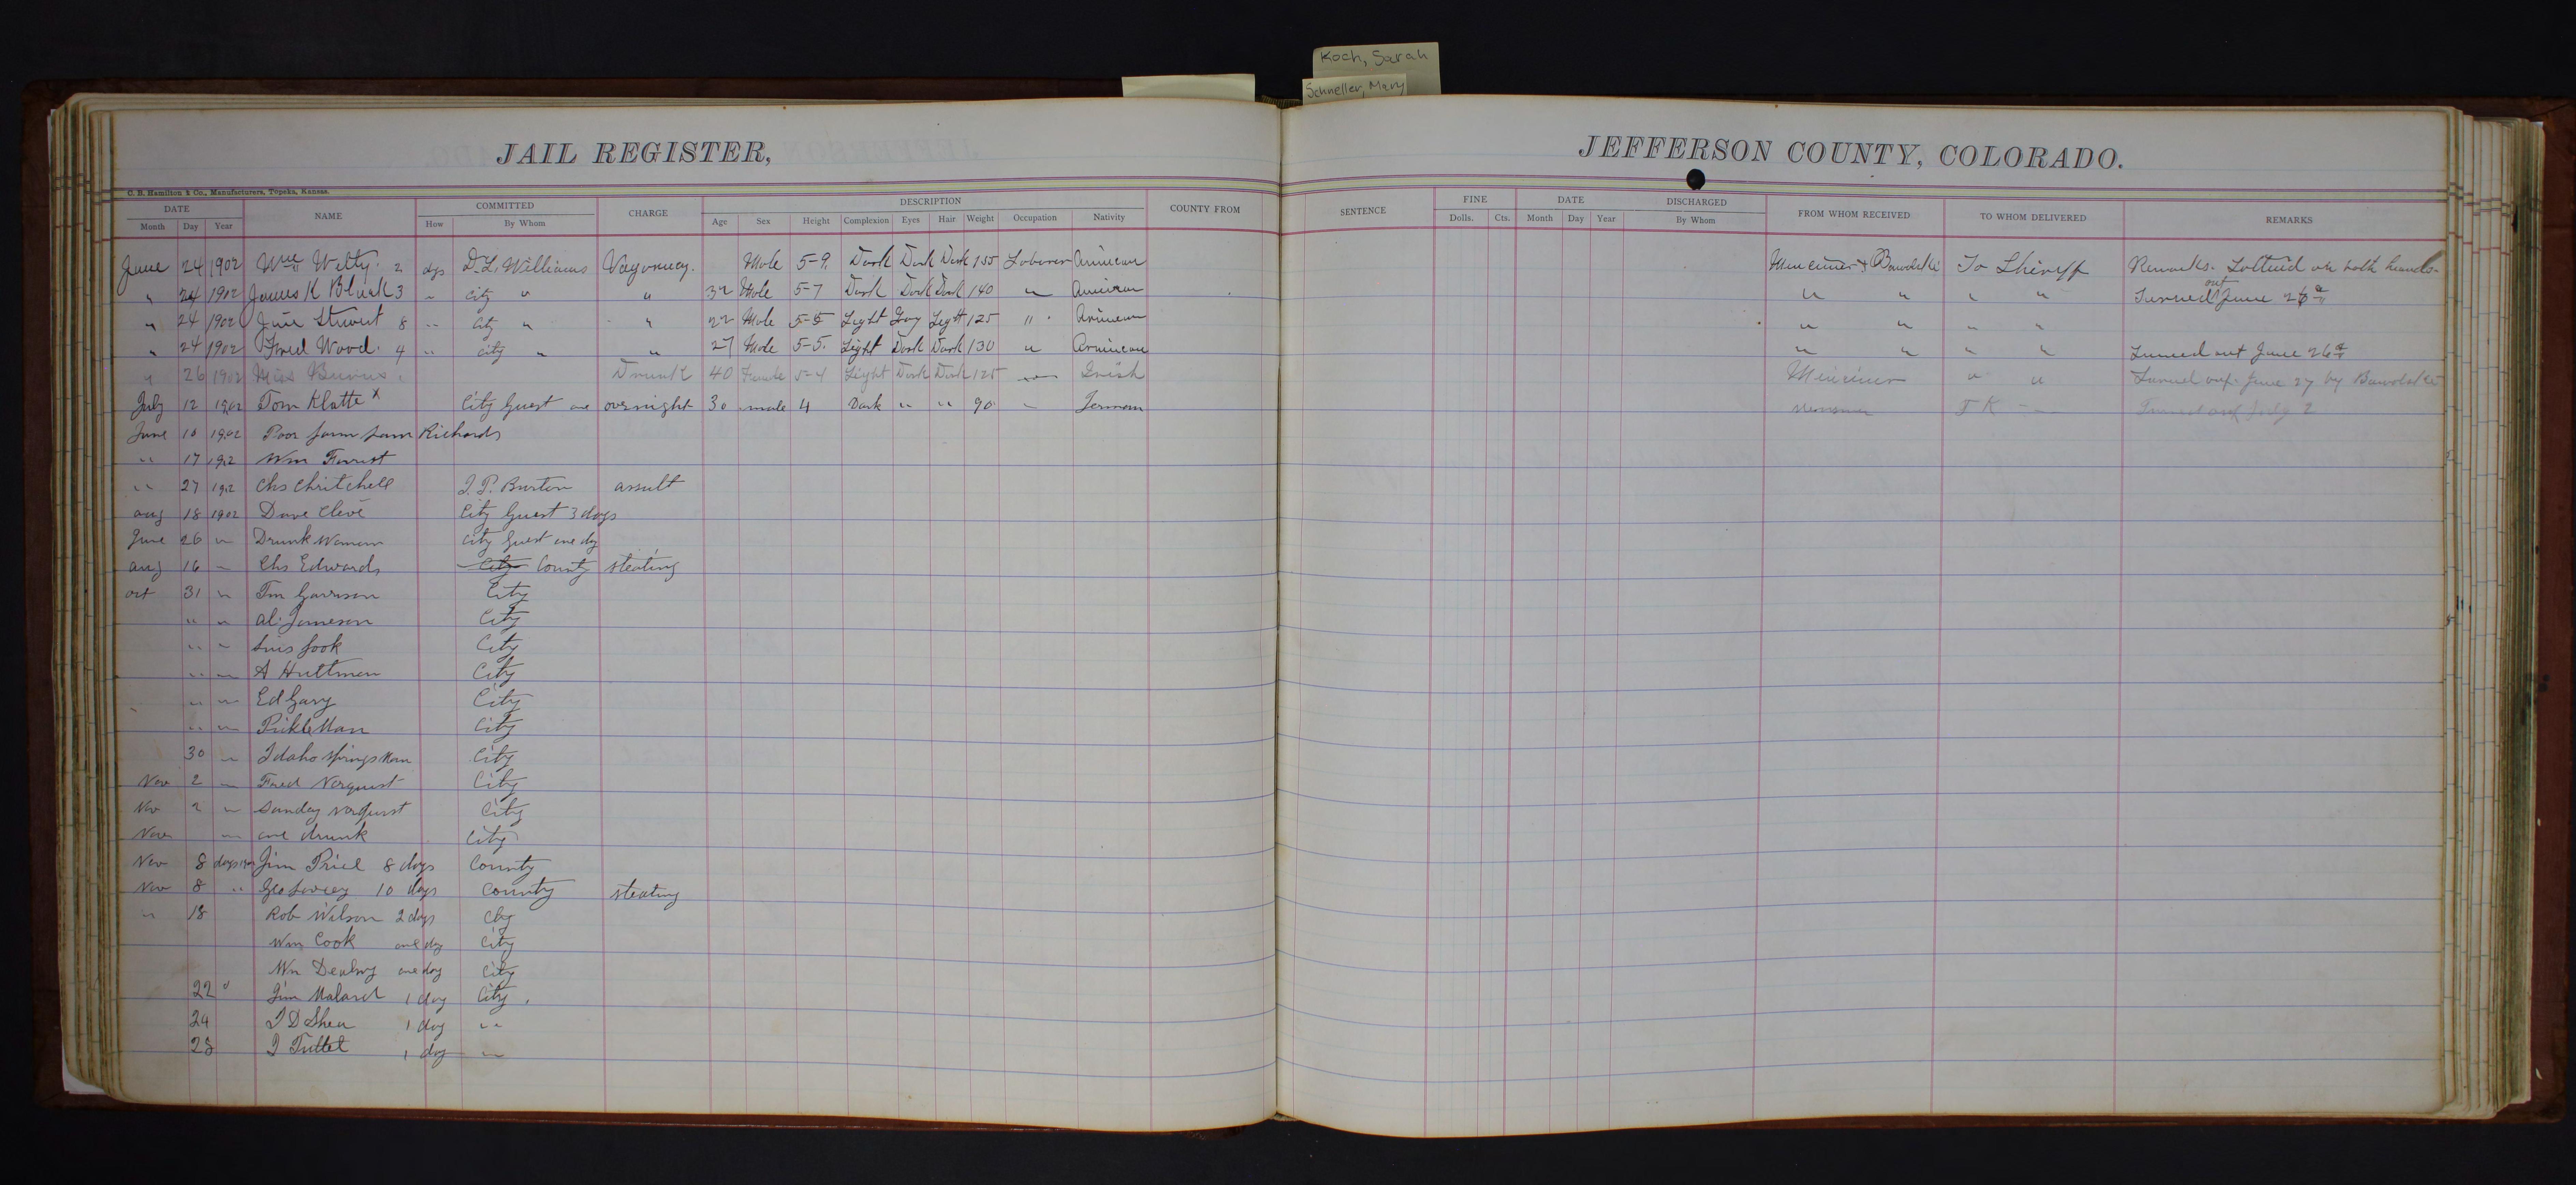 Koch, Sarah
Schneller, Mary
JAIL REGISTER, JEFFERSON COUNTY, COLORADO.
C. B. Hamilton & Co., Manufacturers, Topeka, Kansas.
DATE NAME COMMITTED CHARGE DESCRIPTION COUNTY FROM SENTENCE FINE DATE DISCHARGED FROM WHOM RECEIVED TO WHOM DELIVERED REMARKS
Month Day Year How By Whom Age Sex Height Complexion Eyes Hair Weight Occupation Nativity Dolls. Cts. Month Day Year By Whom
June 24 1902 Wm Welty. 2 dys D. L. Williams Vagorncy. Male 5-9. Dark Dark Dark 155 Laborer American To Sheriff Remarks. on both hands
" 24 1902 James K 3 " City " " 32 Male 5-7 Dark Dark Dark 140 " American " " " " Turned out June 26
" 24 1902 8 " City " " 22 Male Light Light 125 " American " " " "
" 24 1902 Fred Wood. 4 " City " " 27 Male 5-5. Light Dark Dark 130 " American " " " " Turned out June 26
" 26 1902 Miss Drunk 40 Female 5-4 Light Dark Dark 125 " Irish " " Turned out June 27 by
July 12 1902 Tom Klatte x City Guest one overnight 30 male 4 Dark " " 90 - German Turned out July 2
June 10 1902 Poor farm Richards
" 17 1902 Wm Forrest
" 27 1902 Chs Chritchell J. P. Burton assult
aug 18 1902 Dave Cleve City Guest 3 days
June 26 " Drunk Woman City Guest one day
aug 16 " Chs Edwards City County steating
oct 31 " Tm Garrison City
" " Al. Jameson City
" " City
" " A Huttman City
" " Ed Gary City
" " Pickle Man City
30 " Idaho springs Man City
Nov 2 " Fred Norquist City
Nov 2 " Sunday Norquist City
Nov " one drunk City
Nov 8 days 1902 Jim 8 days County
Nov 8 " Geo 10 days County steating
" 18 Rob Wilson 2 days City
Wm Cook one day City
Wm one day City
22 " Jim 1 day City
24 J D Shea 1 day "
28 J Tuttel 1 day "